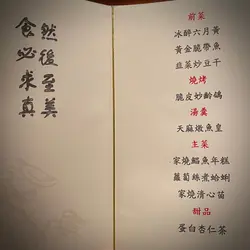 食必求真
然後至美
前菜
冰醉六月黃
黃金脆帶魚
韭菜炒豆干
燒烤
脆皮妙齡鴿
湯羹
天麻燉魚皇
主菜
家燒鯧魚年糕
蘿蔔絲煮蛤蜊
家燒清心苗
甜品
蛋白杏仁茶